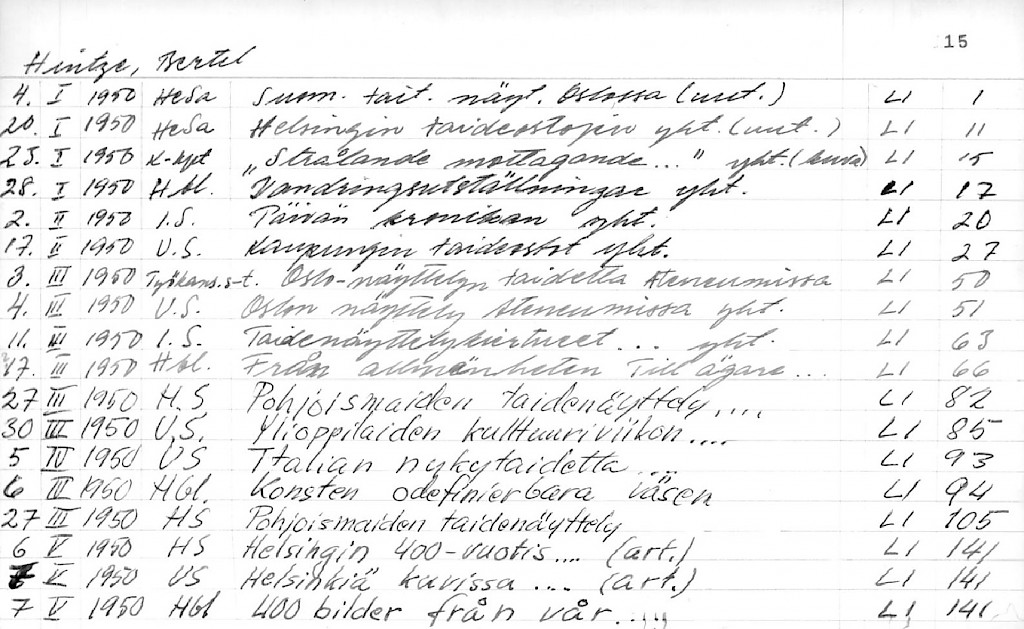 15
Hintze, Bertel
4. I 1950 HeSa Suom. tait. näyt. Oslossa (uut.) LI 1
20. I 1950 HeSa Helsingin taideostojen yht. (uut.) LI 11
23. I 1950 K-lpt "Strålande mottagande..." yht. (kuva) LI 15
28. I 1950 Hbl. Vandringsutställningar yht. LI 17
2. II 1950 I.S. Päivän kronikan yht. LI 20
17. II 1950 U.S. Kaupungin taideostot yht. LI 27
3. III 1950 Työkans.s-t. Oslo-näyttelyn taidetta Ateneumissa LI 50
4. III 1950 U.S. Oslon näyttely Ateneumissa yht. LI 51
11. III 1950 I.S. Taidenäyttelykiertueet... yht. LI 63
17. III 1950 Hbl. Från allmänheten Till ägare... LI 66
27 III 1950 H.S Pohjoismaiden taidenäyttely.... LI 82
30 III 1950 U.S. Ylioppilaiden kulttuuriviikon.... LI 85
5 IV 1950 US Italian nykytaidetta.... LI 93
6 IV 1950 Hbl. Konsten odefinierbara väsen LI 94
27 III 1950 HS Pohjoismaiden taidenäyttely LI 105
6 V 1950 HS Helsingin 400-vuotis.... (art.) LI 141
V 1950 US Helsinkiä kuvissa .... (art.) LI 141
7 V 1950 Hbl 400 bilder från vår..... LI 141